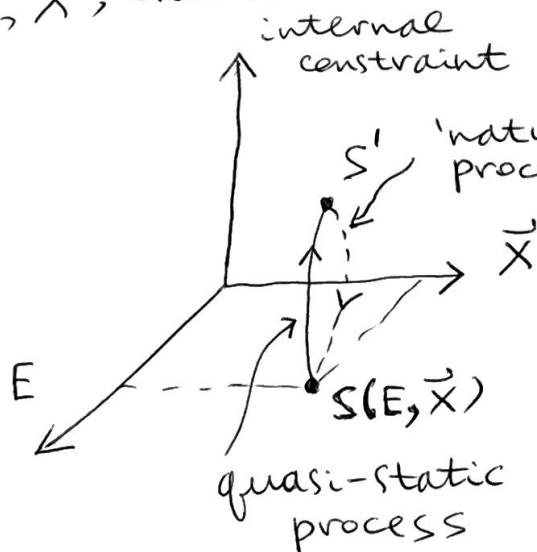 , X,
internal
constraint
S'
X⃗
E
S(E, X⃗)
quasi-static
process